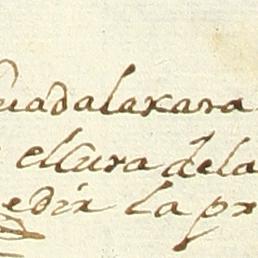 Guadalaxara
el Cura dela
edir la pr